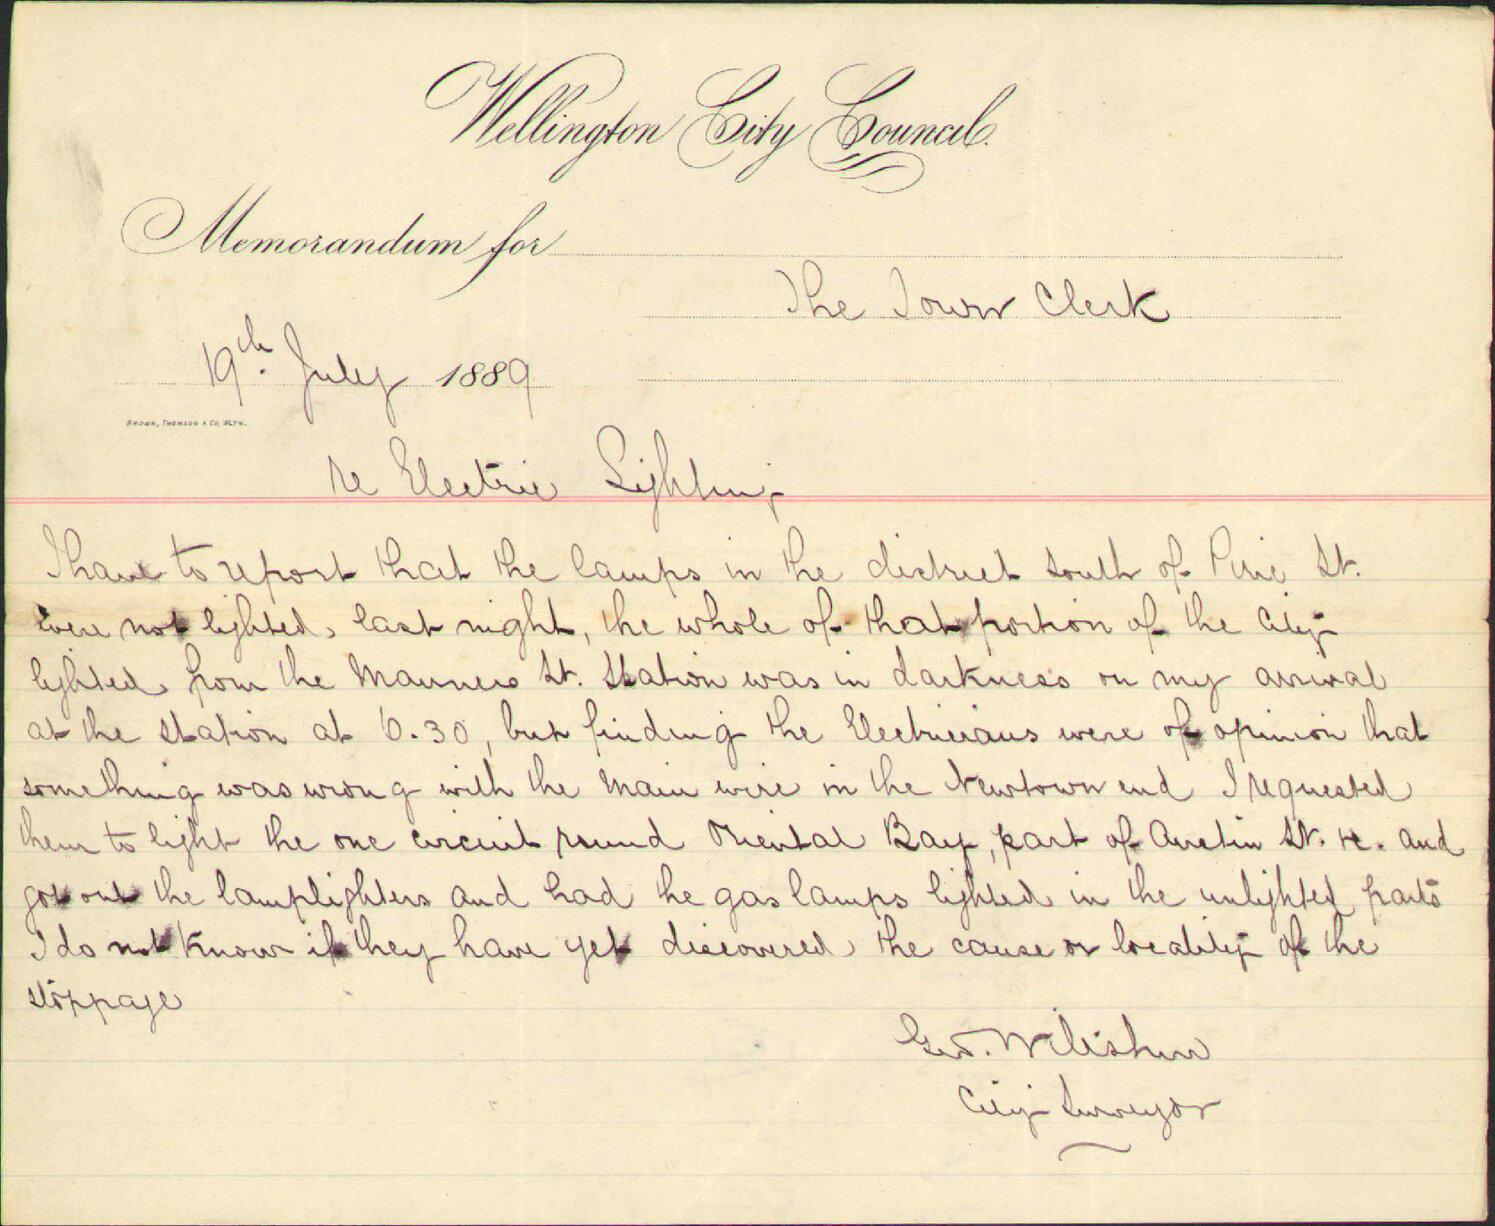 Wellington City Council.
Memorandum for
The Town Clerk
19th. July 1889
BROWN, THOMSON & CO, WLTN.
re Electric Lighting
I have to report that the lamps in the district south of Pirie St.
were not lighted, last night, the whole of that portion of the City
lighted from the Manners St. Station was in darkness on my arrival
at the station at 6.30, but finding the Electricians were of opinion that
something was wrong with the main wire in the Newtown end I requested
them to light the one circuit round Oriental Bay, part of Austin St. &c. and
got out the lamplighters and had the gas lamps lighted in the unlighted parts
I do not know if they have yet discovered the cause or locality of the
stoppage
Geo. Wiltshire
City Surveyor